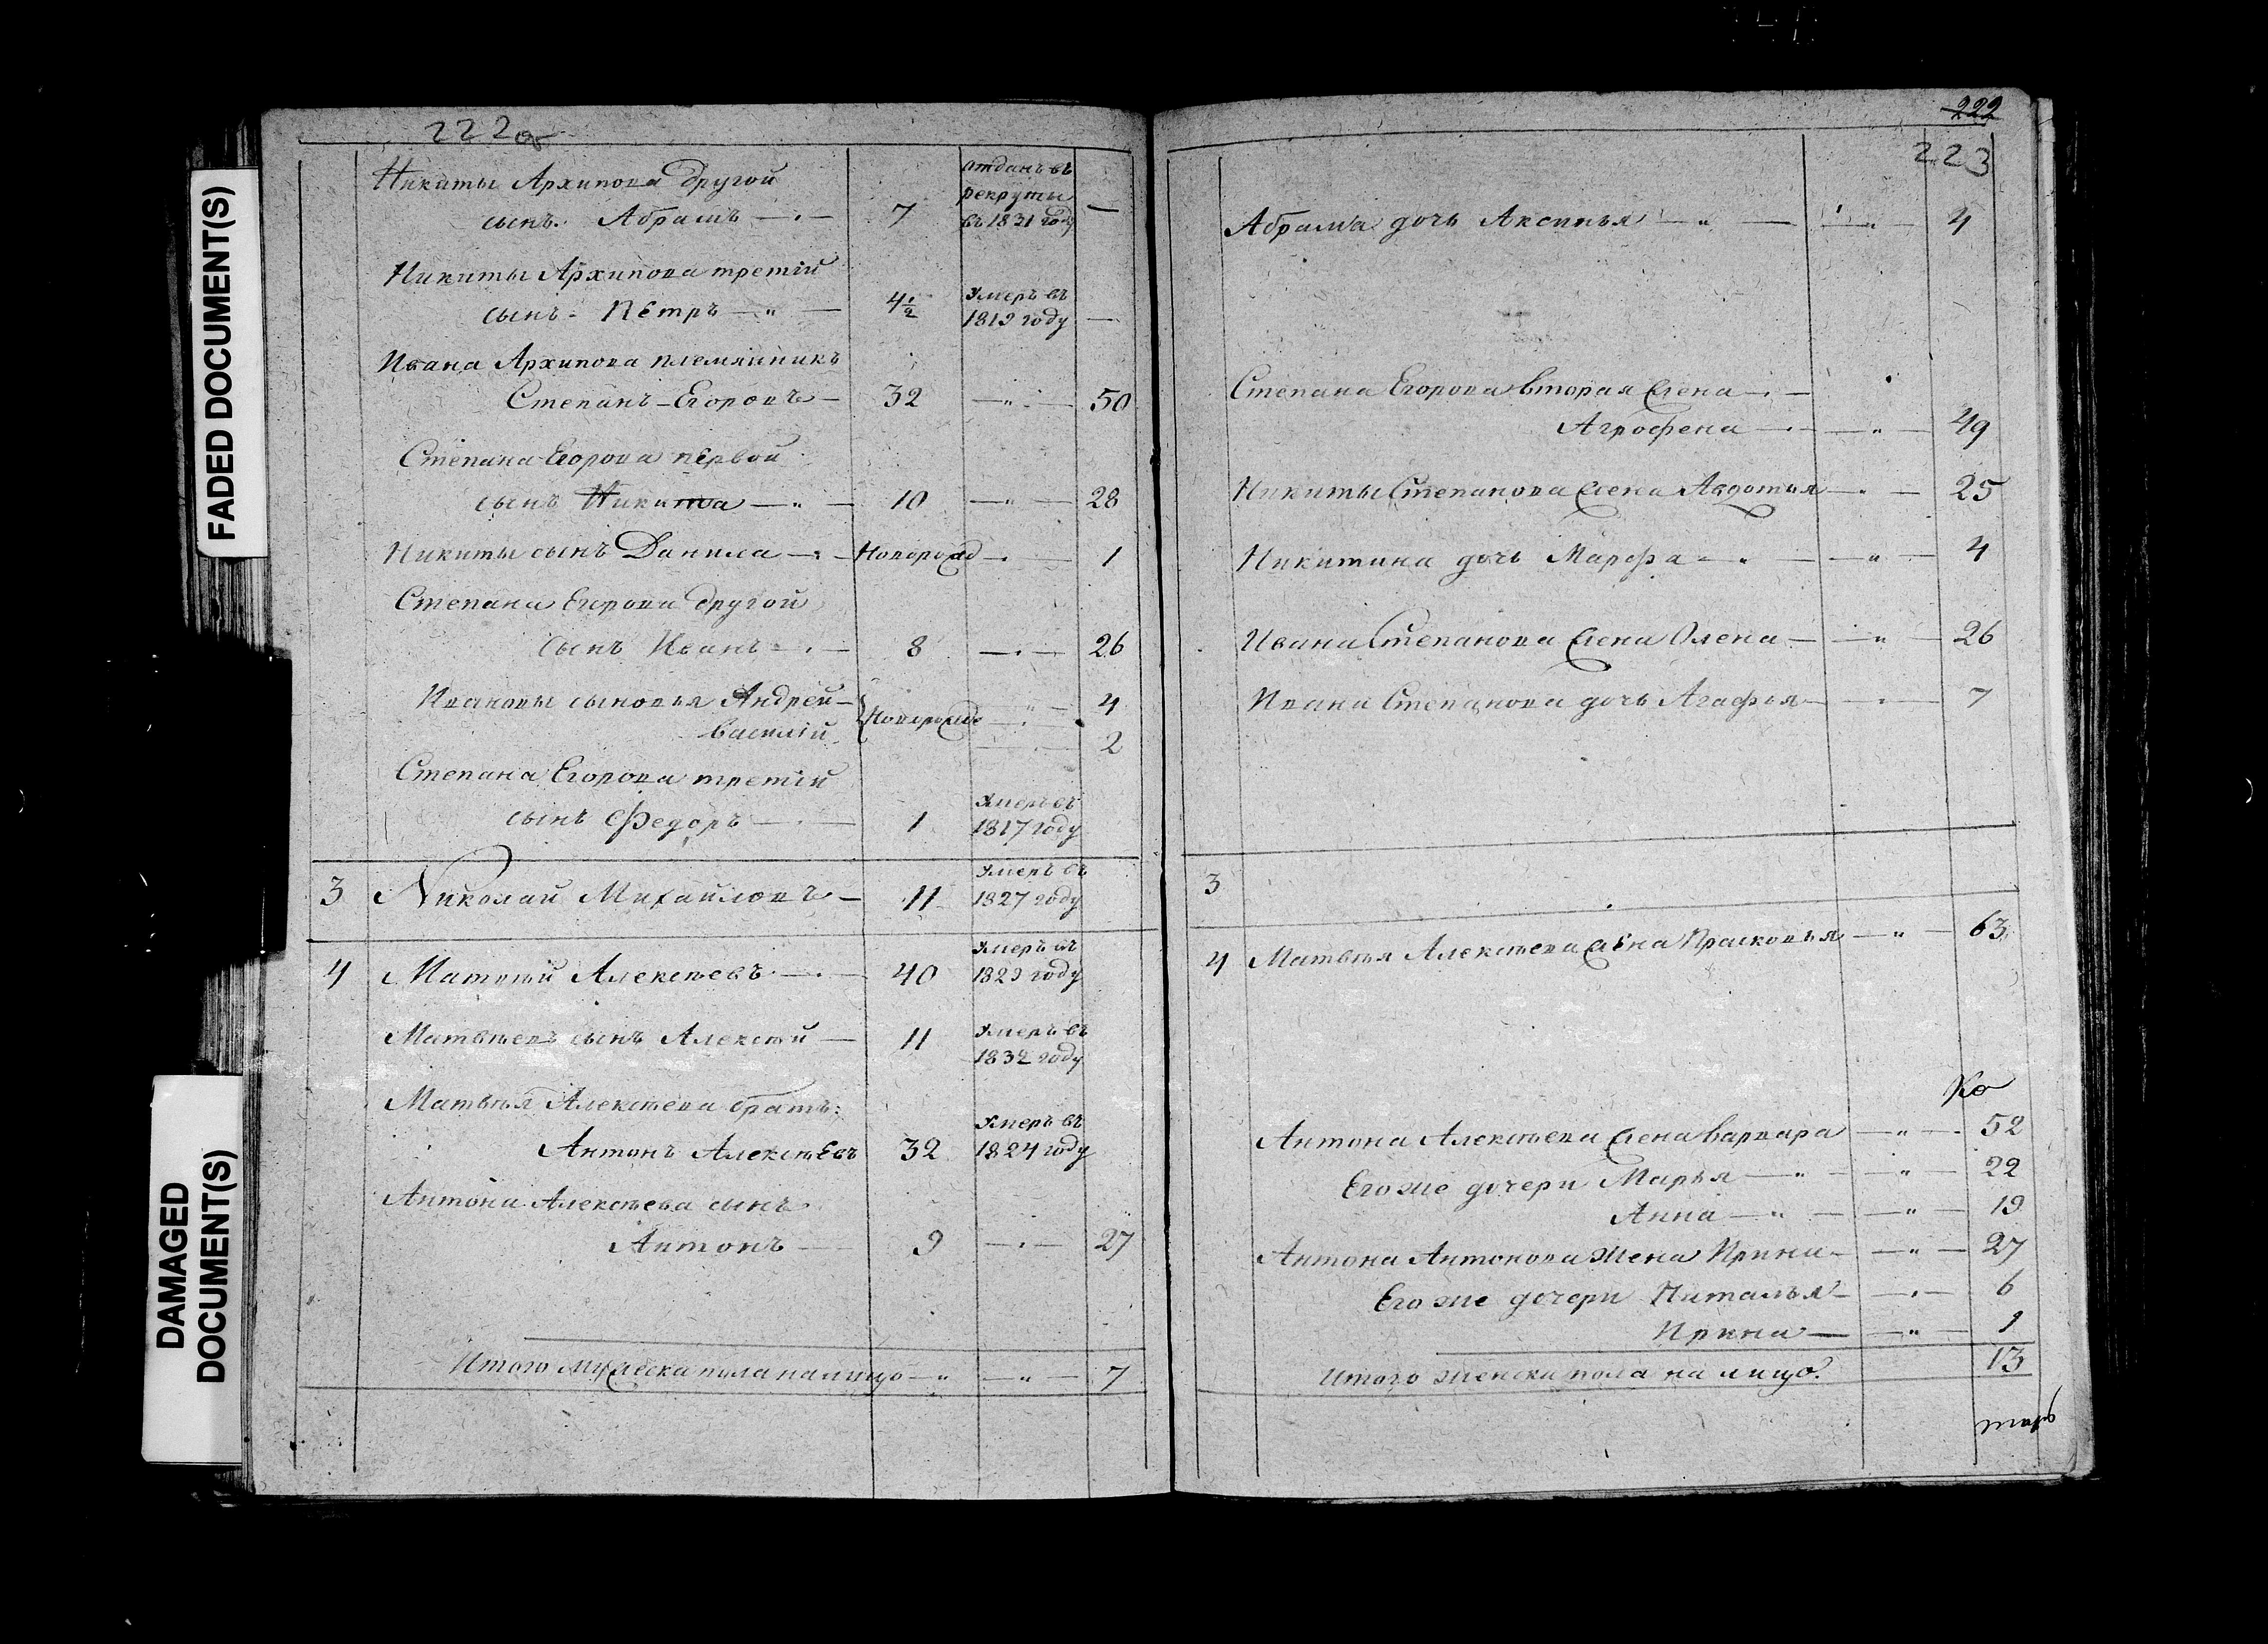 222об
Никиты Архипова другой
сынъ. Абрамъ — 7 отданъ въ рекруты въ 1831 году —
Никиты Архипова третій
сынъ. Пётръ — 4 1/2 Умеръ въ 1819 году —
Ивана Архипова племянникъ
Степанъ Егоровъ — 32 — 50
Степана Егорова первой
сынъ Никита — 10 — 28
Никиты сынъ Данила — Новорожд — 1
Степана Егорова другой
сынъ Иванъ — 8 — 26
Ивановы сыновья Андрей — Новорожде — 4
Василій — 2
Степана Егорова третій
сынъ Федоръ — 1 Умеръ въ 1817 году
3 Николай Михайловъ — 11 Умеръ въ 1827 году
4 Матвѣй Алексѣевъ — 40 Умеръ въ 1829 году
Матвѣевъ сынъ Алексѣй — 11 Умеръ въ 1832 году
Матвѣя Алексѣева братъ:
Антонъ Алексѣевъ 32 Умеръ въ 1824 году
Антона Алексѣева сынъ
Антонъ — 9 — 27
Итого мужеска пола на лицо — 7
222
223
Абрама дочь Аксинья — 4
Степана Егорова вторая жена —
Агрофена — 49
Никиты Степанова жена Авдотья — 25
Никитина дочь Марфа — 4
Ивана Степанова жена Олена — 26
Ивана Степанова дочь Агафья — 7
3
4 Матвѣя Алексѣева жена Прасковья — 63
Ко
Антона Алексѣева жена Варвара — 52
Его же дочери Марья — 22
Анна — 19
Антона Антонова жена Ирина — 27
Его же дочери Наталья — 6
Ирина — 1
Итого женска пола на лицо. 13
FADED DOCUMENT(S)
DAMAGED
DOCUMENT(S)